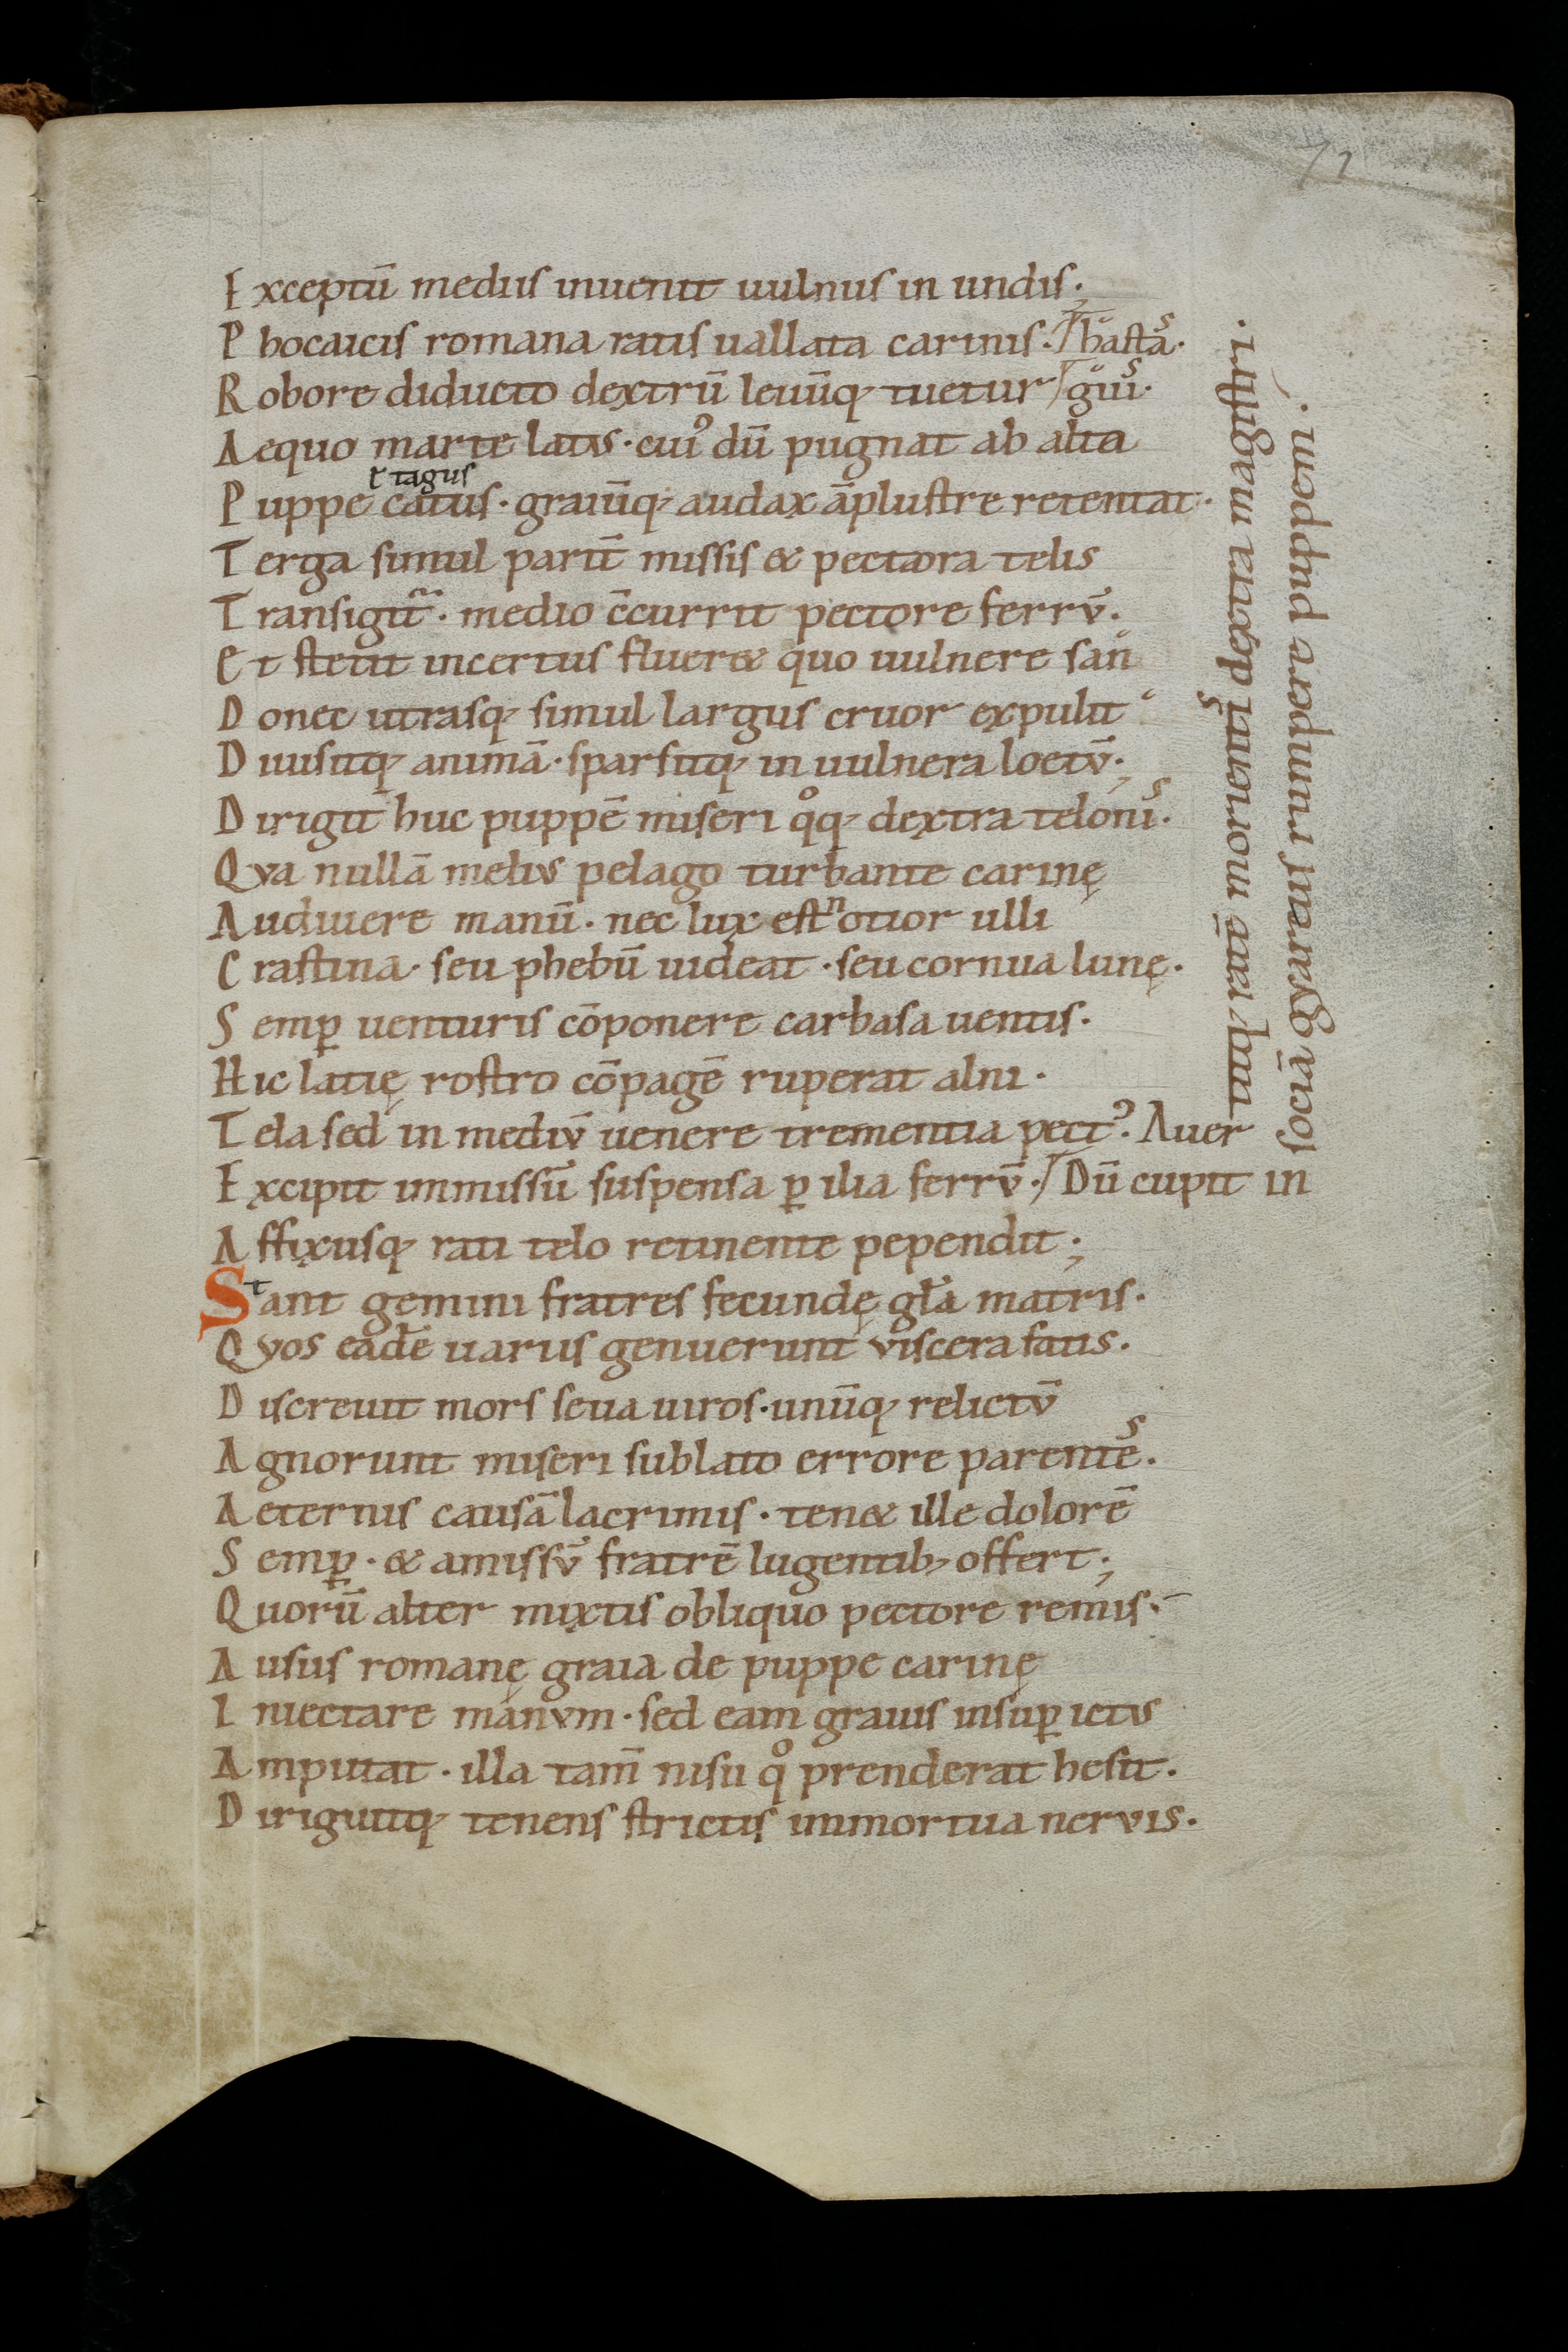 72
Exceptū mediis inuenit uulnus in undis;
Phocaicis romana ratis uallata carinis. hastas.
Robore diducto dextrū leuūq; tuetur guis.
Aequo marte latus. cui⁹ dū pugnat ab alta
ł tagus
Puppe catus. graiūq; audax āplustre retentat.
Terga simul parit̄ missis & pectora telis
Transigit᷒. medio c̄currit pectore ferrū.
Et stetit incertus flueret quo uulnere sang
Donec utrasq; simul largus cruor expulit
Diuisitq; animā. sparsitq; in uulnera loetū;
Dirigit huc puppē miseri qͦq; dextra telonis.
Qva nullā melius pelago turbante carinę
Audiuere manū. nec lux est notior ulli
Crastina. seu phebū uideat. seu cornua lunę.
Semꝑ uenturis cōponere carbasa uentis.
Hic latię rostro cōpagē ruperat alni.
Tela sed in mediū uenere trementia pect⁹. Auer
titq; ratē morientis dextra magistri.
Excipit immissū suspensa ꝑ ilia ferrū. Dū cupit in
sociā gyareus rumpere puppem.
Affixusq; rati telo retinente pependit;
Stant gemini fratres fecundę gl̄a matris.
Qvos eadē uariis genuerunt viscera fatis.
Discreuit mors seua uiros. unūq; relictū
Agnorunt miseri sublato errore parentes.
Aeternis causā lacrimis. tenet ille dolorē
Semꝑ. & amissū fratrē lugentib; offert;
Quorū alter mixtis obliquo pectore remis.
Ausus romanę graia de puppe carinę
Iniectare manvm. sed eam grauis insuꝑ ictus
Amputat. illa tam̄ nisu qͦ prenderat hesit.
Diriguitq; tenens strictis immortua nervis.